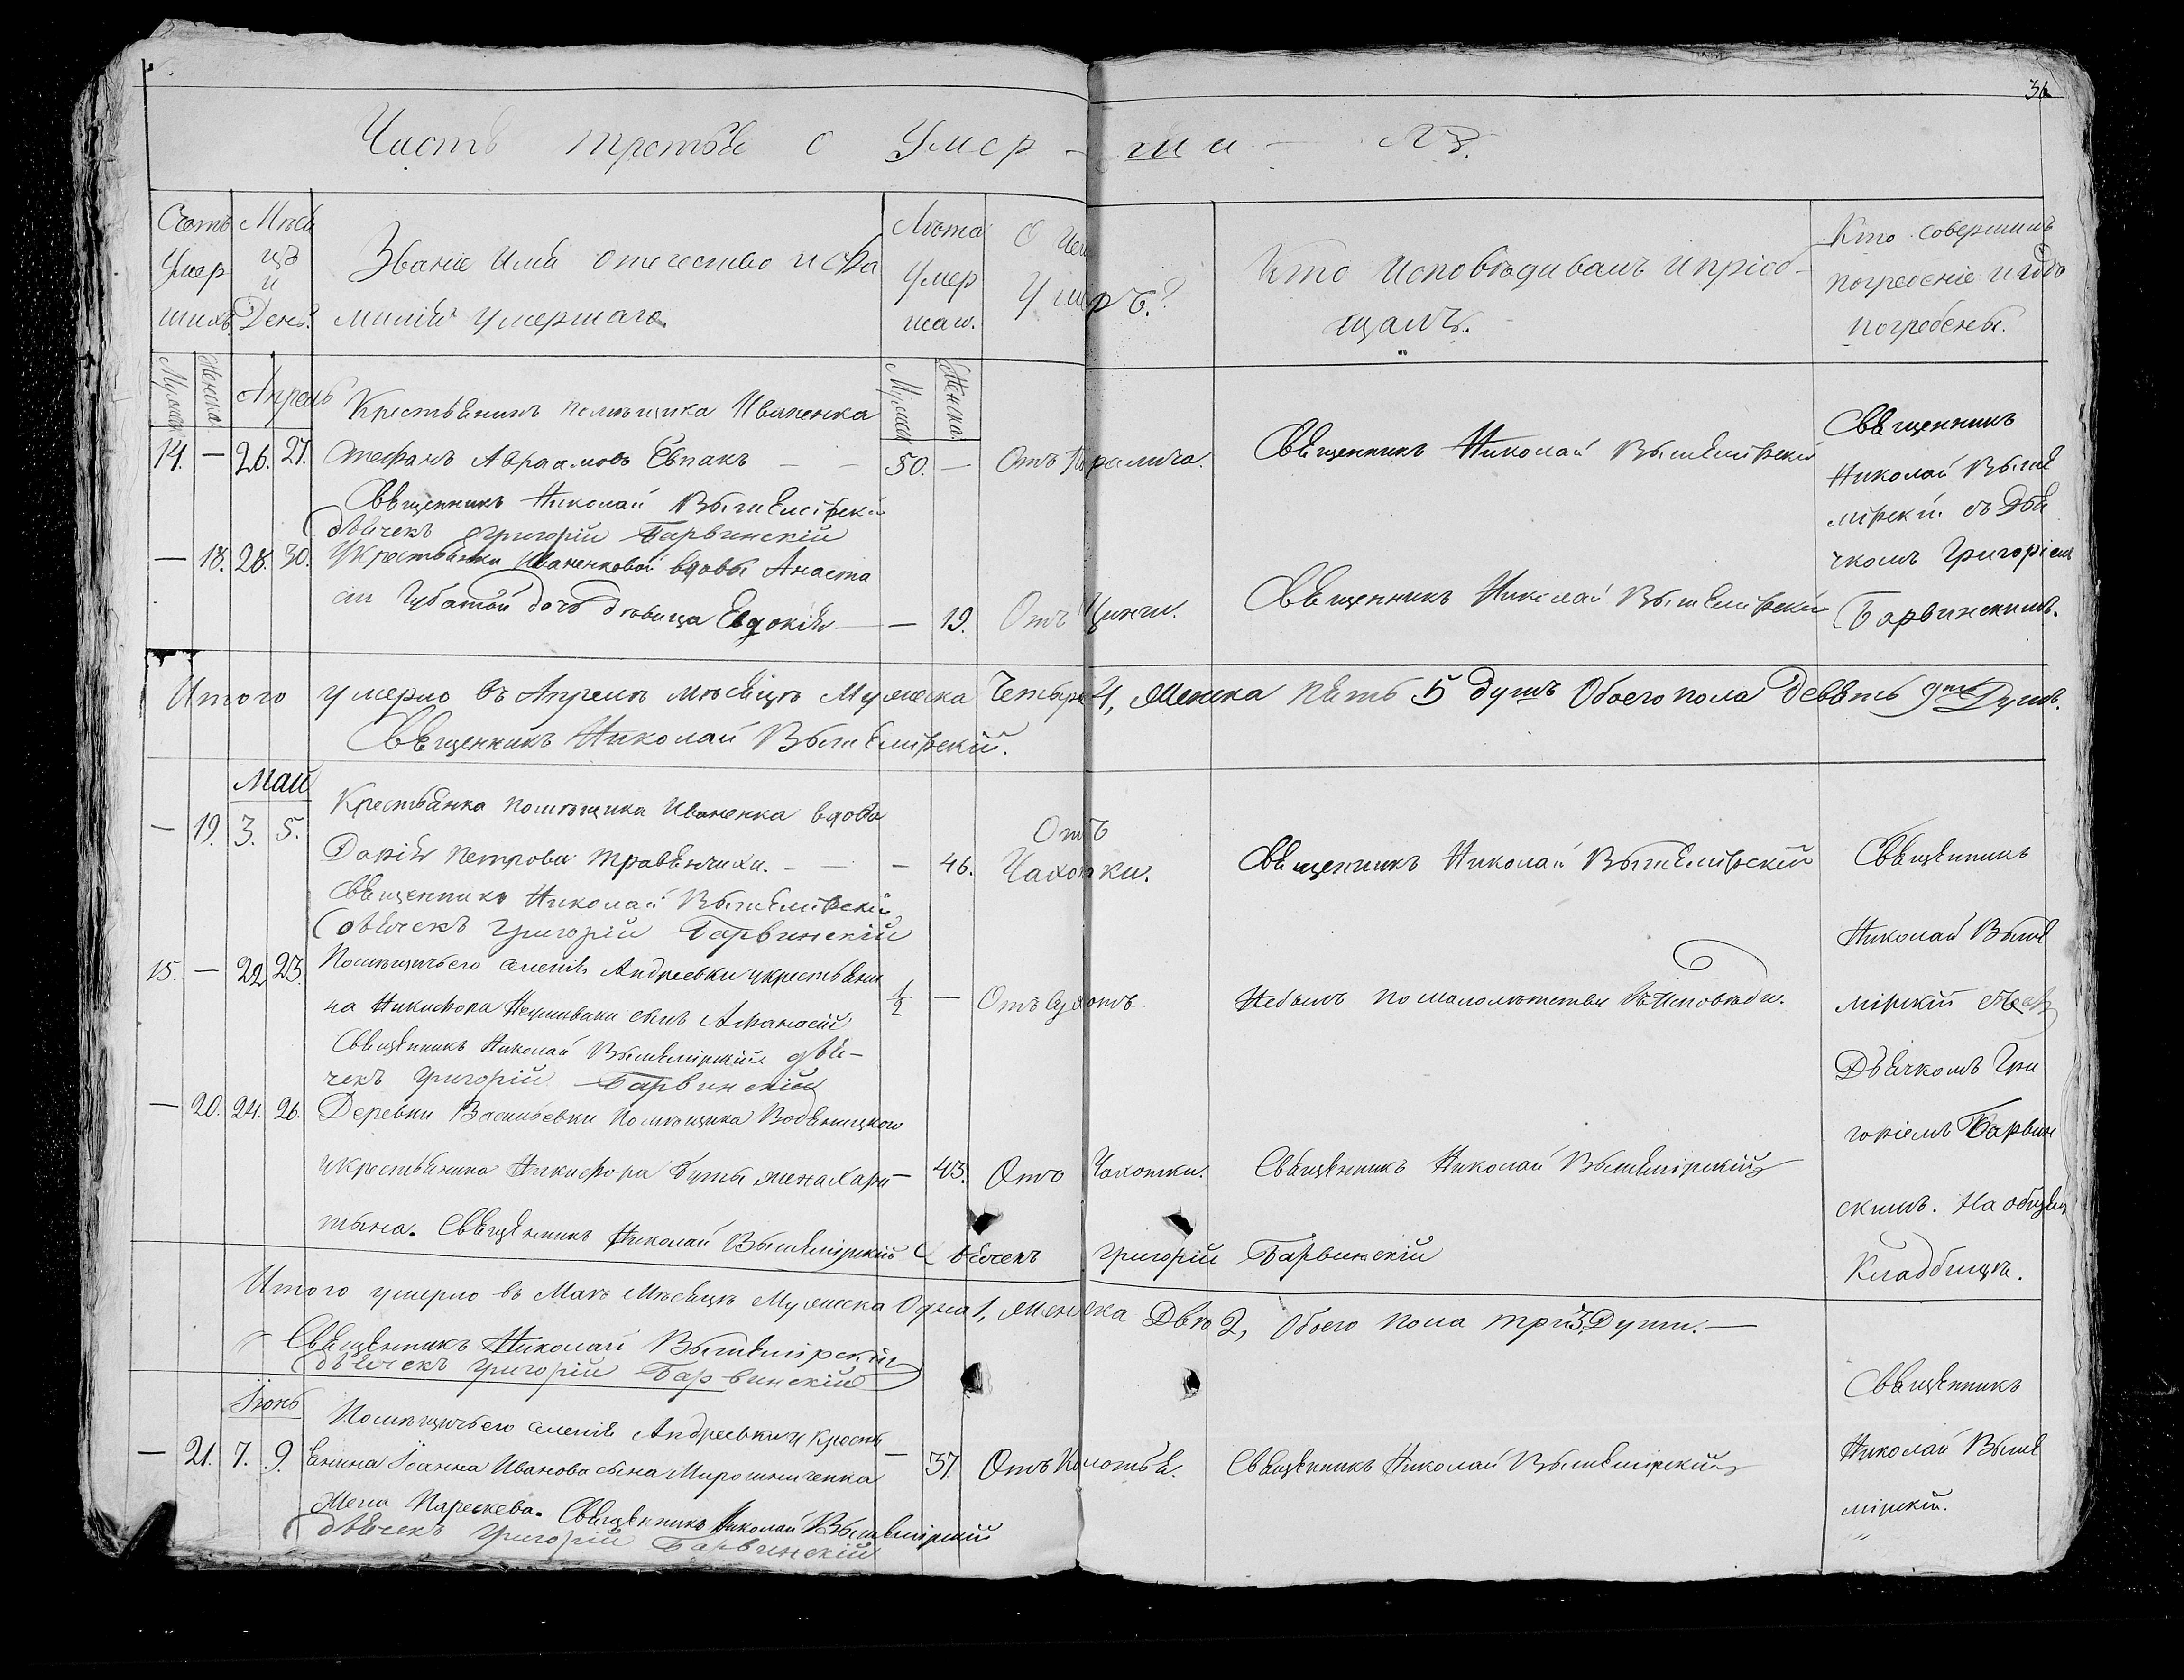 36
Часть третья о Умер-ши-хъ.
Счетъ Умер шихъ.
Мѣся цъ и День.
Званіе Имя отчество и фа милія умершаго.
Лѣта Умер шаго.
О чемъ Умеръ?
Кто Исповѣдывалъ и пріоб-щалъ.
Кто совершилъ погребеніе и гдѣ погребены.
Мужеска Женска Апрель Мужеска Женска
Крестьянинъ помѣщика Иваненка
14. — 26. 27. Стефанъ Авраамовъ Евпакъ — — 50. — Отъ Паралича. Священникъ Николай Вышемірскій
Священникъ
Николай Выше
мірскій съ Дья
чкомъ Григоріемъ
Барвинскимъ.
Священникъ Николай Вышемірскій
Дьячекъ Григорій Барвинскій
— 18. 28. 30. Укрестьянки Иваненковой вдовы Анаста
сіи Губатой дочь дѣвица Евдокія — — 19. Отъ Цинги. Священникъ Николай Вышемірскій
Итого умерло въ Апрелѣ мѣсяцѣ Мужеска Четыре 4, Женска Пять 5 душъ Обоего пола Девять 9ть Душъ.
Священникъ Николай Вышемірскій.
Май
Крестьянка помѣщика Иваненка вдова
— 19. 3. 5. Дарія Петрова Травянчиха. — — 46. Отъ Чахотки. Священникъ Николай Вышемірскій
Священникъ
Николай Выше
мірскій съ
Дьячкомъ Гри
горіемъ Барвин
скимъ. На общем
Кладбищѣ.
Священникъ Николай Вышемірскій
Дьячекъ Григорій Барвинскій
15. — 22 23. Помѣщичьего селенія Андреевки укрестьяни
на Никифора сынъ Афанасій 1/2 — Отъ Сухотъ. Небылъ по малолѣтству Уисповѣди.
Священникъ Николай Вышемірскій дья-
чекъ Григорій Барвинскій
— 20. 24. 26. Деревни Васильевки Помѣщика Водяницкого
укрестьянина Никифора Буты жена Хари — 43. Отъ Чахотки. Священникъ Николай Вышемірскій
тына. Священникъ Николай Вышемірскій Дьячекъ Григорій Барвинскій
Итого умерло въ Маѣ Мѣсяцѣ Мужеска Одна 1, Женска Двѣ 2, Обоего пола три 3, Души. —
Священникъ Николай Вышемірскій
Дьячекъ Григорій Барвинскій
Іюнь
Помѣщичьего селенія Андреевки у Кресть
— 21. 7. 9. янина Іоанна Иванова сына Мирошниченка — 37. Отъ Колотья. Священникъ Николай Вышемірскій
Священникъ
Николай Выше
мірскій.
Жена Параскева. Священникъ Николай Вышемірскій
Дьячекъ Григорій Барвинскій